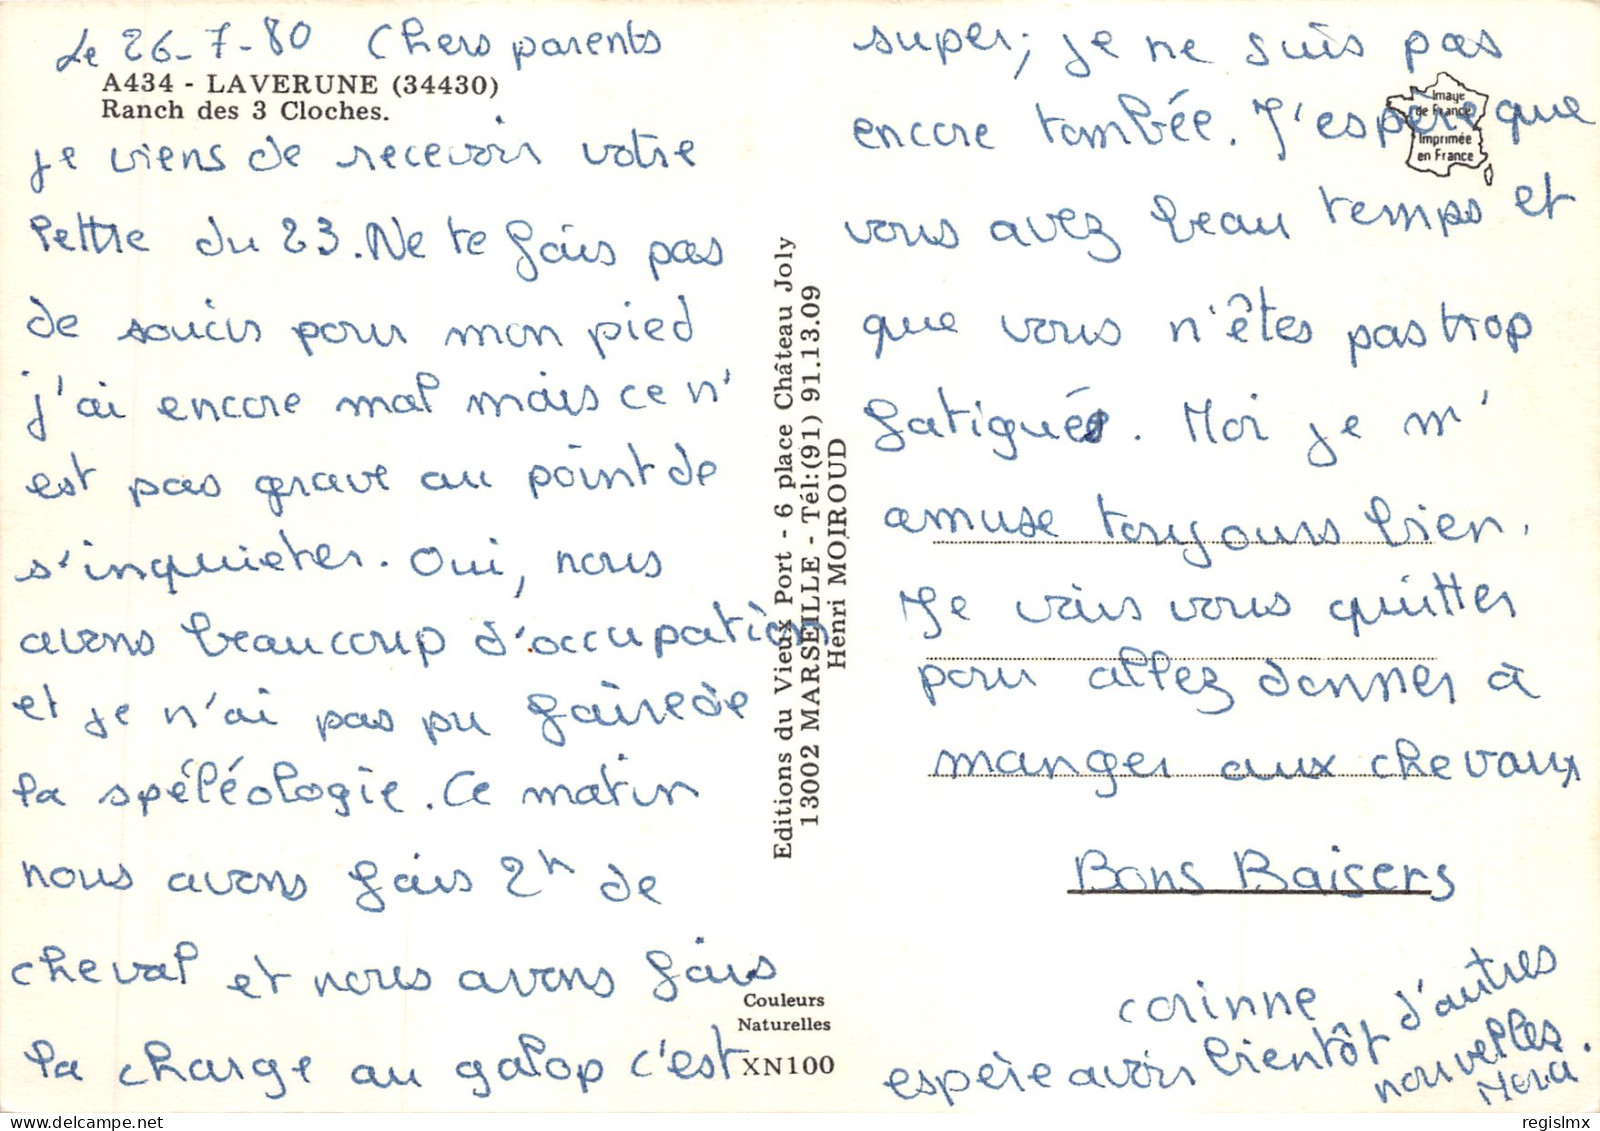 Le 26-7-80 Chers parents
A434 - LAVERUNE (34430)
Ranch des 3 Cloches.
je viens de recevoir votre
lettre du 23. Ne te fais pas
de soucis pour mon pied
j'ai encore mal mais ce n'
est pas grave au point de
s'inquieter. Oui, nous
avons beaucoup d'occupation
et je n'ai pas pu faire de
la spéléologie. Ce matin
nous avons fais 2h de
cheval et nous avons fais
la charge au galop c'est
Editions du Vieux Port - 6 place Château Joly
13002 MARSEILLE - Tél:(91) 91.13.09
Henri MOIROUD
Couleurs
Naturelles
XN100
super; je ne suis pas
encore tombée. J'espère que
vous avez beau temps et
que vous n'êtes pas trop
fatigués. Moi je m'
amuse toujours bien.
Je vais vous quitter
pour allez donner à
manger aux chevaux
Bons Baisers
corinne
espère avoir bientôt d'autres
nouvelles.
Image
de France
Imprimée
en France
regislmx